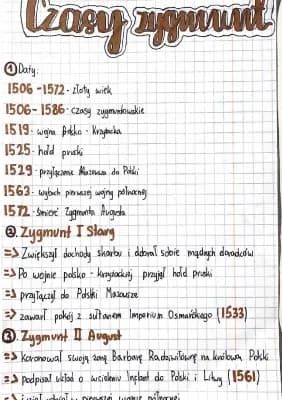 Czasy zygmunt
① Daty:
1506 - 1572 - złoty wiek
1506 - 1586 - czasy zygmuntowskie
1519 - wojna Polsko - Krzyżacka
1525 - hołd pruski
1529 - przyłączenie Mazowsza do Polski
1563 - wybuch pierwszej wojny północnej
1572 - śmierć Zygmunta Augusta
②. Zygmunt I Stary
=> Zwiększył dochody skarbu i dobrał sobie mądrych doradców
=> Po wojnie polsko - krzyżackiej przyjął hołd pruski
=> przyłączył do Polski Mazowsze
=> zawarł pokój z sułtanem Imperium Osmańskiego (1533)
③. Zygmunt II August
=> koronował swoją żonę Barbarę Radziwiłłównę na królową Polski
=> podpisał układ o wcieleniu Inflant do Polski i Litwy (1561)